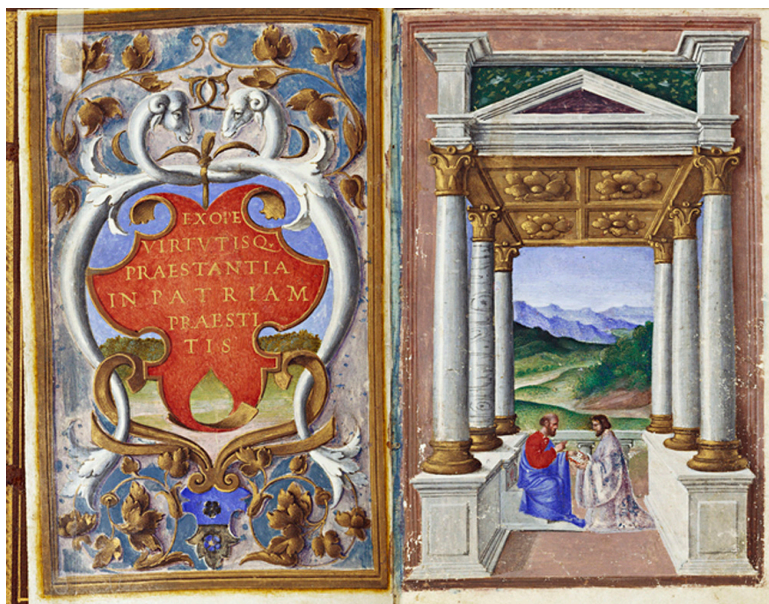 EX OPE
VIRTVTISQ.
PRAESTANTIA
IN PATRIAM
PRAESTI
TIS